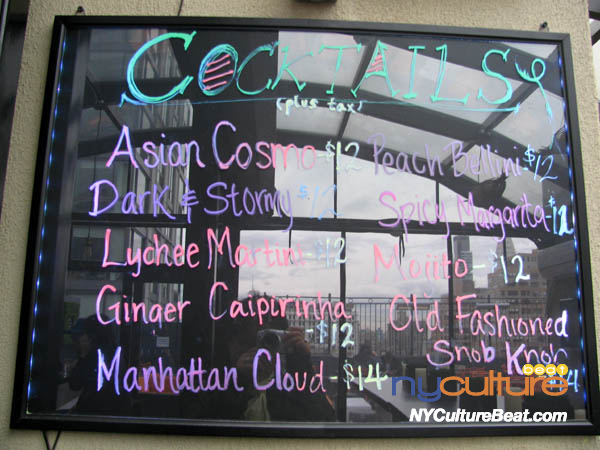 COCKTAILS
(plus tax)
Asian Cosmo - $12
Dark & Stormy $12
Lychee Martini - $12
Ginger Caipirinha
- $12
Manhattan Cloud - $14
Peach Bellini - $12
Spicy Margarita - $12
Mojito - $12
Old Fashioned
Snob Knob
nyculture
beat
NYCultureBeat.com